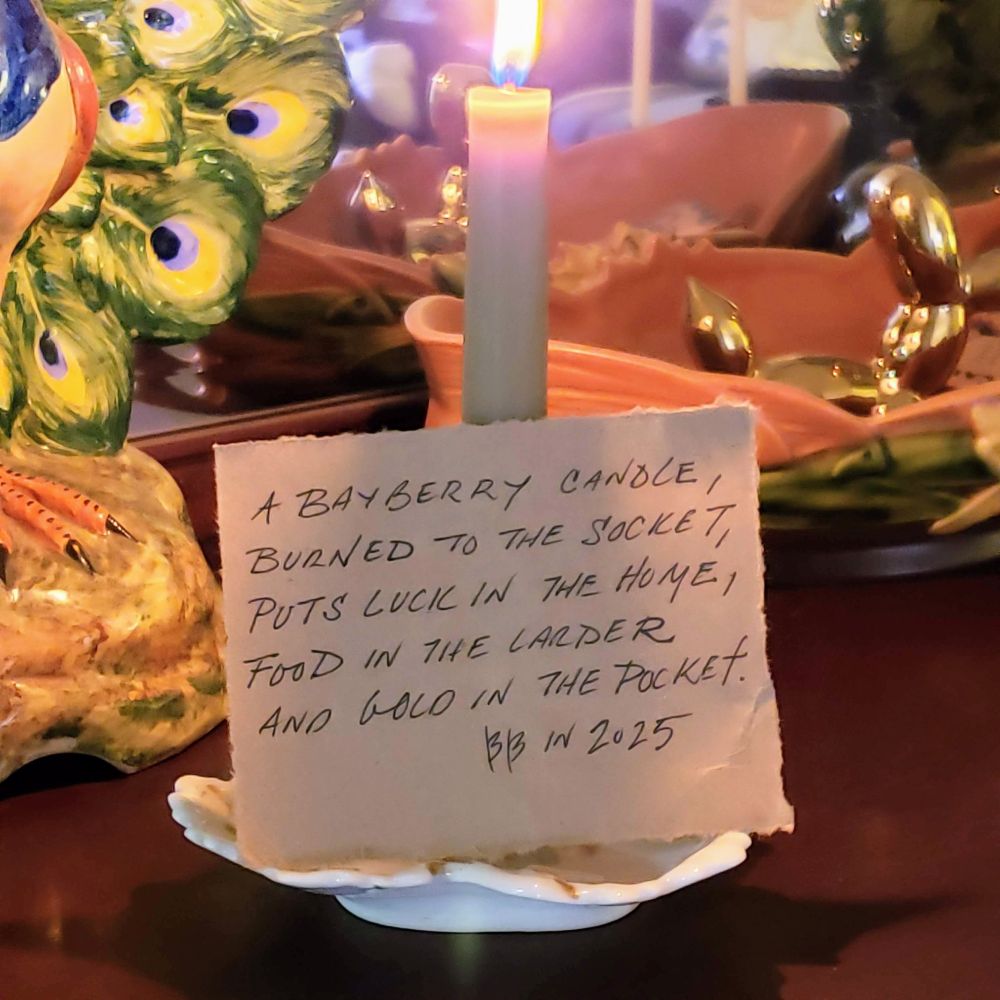 A BAYBERRY CANDLE,
BURNED TO THE SOCKET,
PUTS LUCK IN THE HOME,
FOOD IN THE LARDER
AND GOLD IN THE POCKET.
BB IN 2025